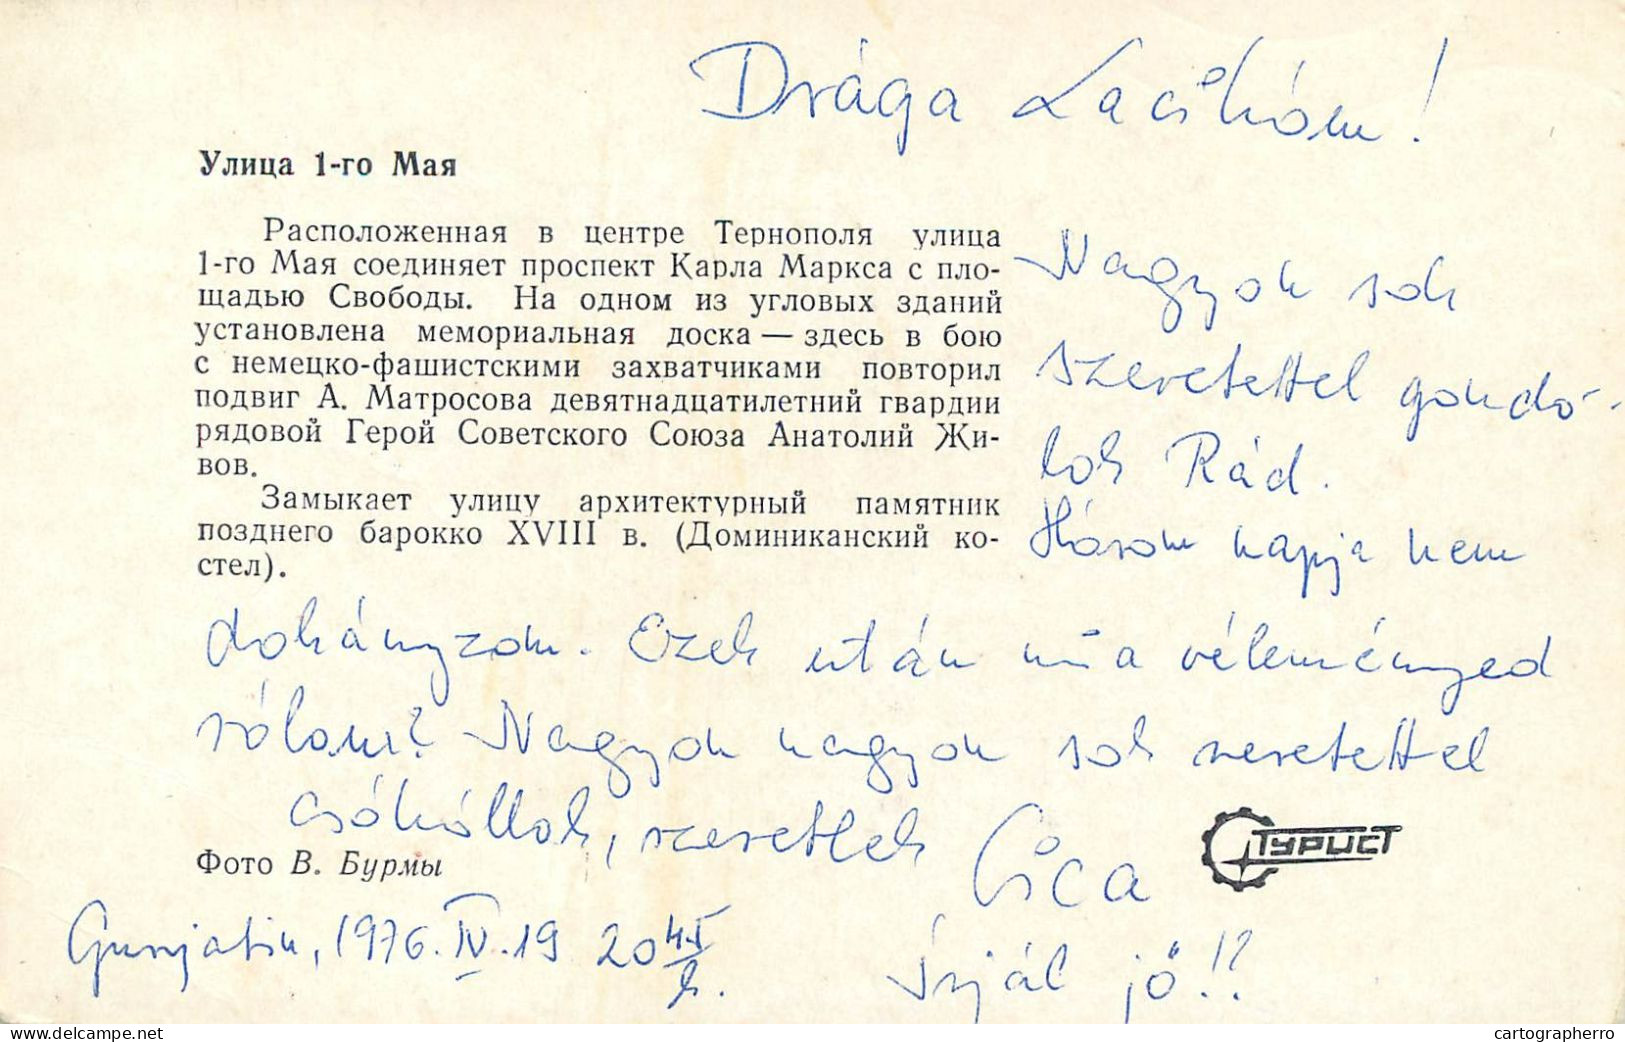 Drága Lacikám!
Улица 1-го Мая
Расположенная в центре Тернополя улица
1-го Мая соединяет проспект Карла Маркса с пло-
щадью Свободы. На одном из угловых зданий
установлена мемориальная доска — здесь в бою
с немецко-фашистскими захватчиками повторил
подвиг А. Матросова девятнадцатилетний гвардии
рядовой Герой Советского Союза Анатолий Жи-
вов.
Замыкает улицу архитектурный памятник
позднего барокко XVIII в. (Доминиканский ко-
стел).
Nagyon sok
szeretettel gondo-
lok Rád.
Három napja nem
dohányzom. Ezek után mi a véleményed
rólam? Nagyon nagyon sok szeretettel
csókollak, szeretlek
Cica
Фото В. Бурмы
ТУРИСТ
1976. IV. 19 20 45
Írjál jó!?
cartographerro